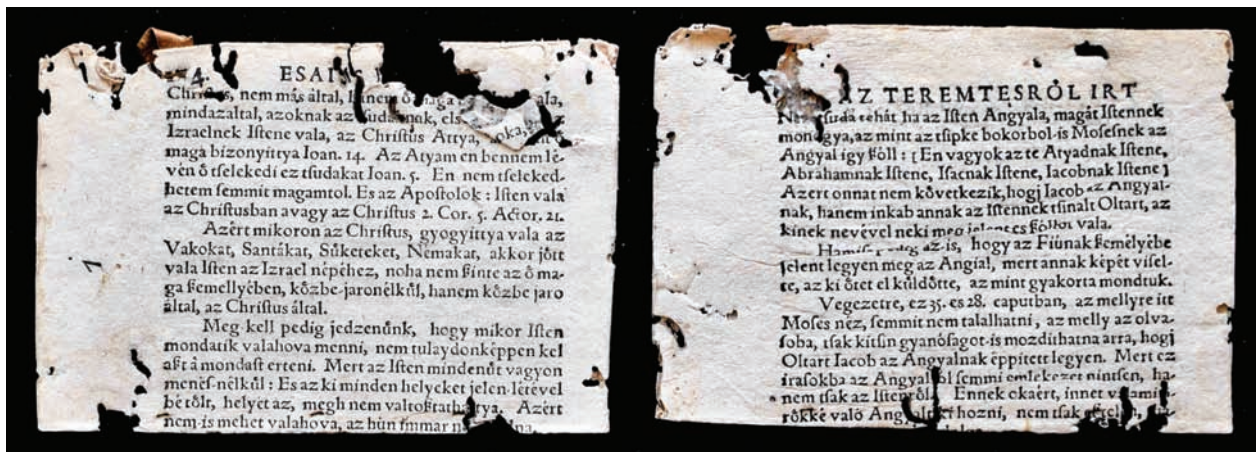 4. ESAIAS
Chriſtus, nem más által, hanem ő maga
mindazaltal, azoknak az tſudaknak,
Izraelnek Iſtene vala, az Chriſtus Attya,
maga bizonyittya Ioan. 14. Az Atyam en bennem lé-
vén ő tſelekedi ez tſudakat Ioan. 5. En nem tſeleked-
hetem ſemmit magamtol. Es az Apoſtolok : Iſten vala
az Chriſtusban avagy az Chriſtus 2. Cor. 5. Actor. 21.
Azért mikoron az Chriſtus, gyogyittya vala az
Vakokat, Santákat, Sűkereket, Némakat, akkor jőtt
vala Iſten az Izrael népéhez, noha nem ſzinte az ő ma-
ga ſzemellyében, kőzbe-jaronélkűl, hanem kőzbe jaro
által, az Chriſtus által.
Meg kell pedig jedzenűnk, hogy mikor Iſten
mondatik valahova menni, nem tulaydonképpen kel
aſzt â mondaſt erteni. Mert az Iſten mindenűt vagyon
menéſ-nélkűl : Es az ki minden helyeket jelen-létével
bé tőlt, helyét az, megh nem valtoſztathattya. Azért
nem-is mehet valahova, az hűn immar
AZ TEREMTESRŐL IRT
Nem tſuda tehát ha az Iſten Angyala, magát Iſtennek
mondgya, az mint az tſipke bokorbol-is Moſesnek az
Angyal igy ſzóll : [ En vagyok az te Atyadnak Iſtene,
Abrahamnak Iſtene, Iſacnak Iſtene, Iacobnak Iſtene ]
Azert onnat nem kővetkezik, hogj Iacob az Angyal-
nak, hanem inkab annak az Iſtennek tſinalt Oltart, az
kinek nevével neki meg jelent es ſzóllot vala.
Hamiſ pedig az-is, hogy az Fiúnak ſzemélyébe
jelent legyen meg az Angial, mert annak képét viſel-
te, az ki őtet el kűldőtte, az mint gyakorta mondtuk.
Vegezetre, ez 35. es 28. caputban, az mellyre itt
Moſes néz, ſemmit nem talalhatni, az melly az olva-
ſoba, tſak kitſin gyanóſagot-is mozdíthatna arra, hogj
Oltart Iacob az Angyalnak éppitett legyen. Mert ez
iraſokba az Angyalról ſemmi emlekezet nintſen, ha-
nem tſak az Iſtenről. Ennek okaért, innet
rőkké való hozni, nem tſak